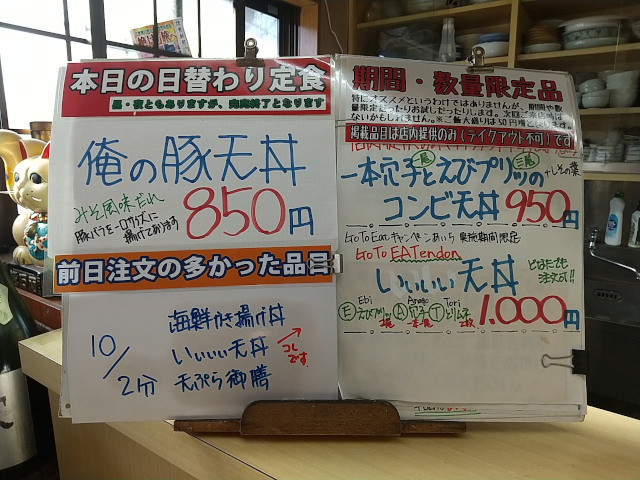 本日の日替わり定食
昼・夜ともありますが、完売終了となります
俺の豚天丼
みそ風味だれ
豚バラを一口サイズに
揚げております
850円
前日注文の多かった品目
10/2分
海鮮かき揚げ丼
いいいい天丼
天ぷら御膳
コレです。
期間・数量限定品
特にオススメというわけではありませんが、期間や数
量限定だったりお試しだったりします。次回ご来店時は
ないかもしれません。※ご飯大盛りは50円増
掲載品目は店内提供のみ(テイクアウト不可)です
一本穴子と二尾えびプリッの三尾
+しその葉
コンビ天丼 950円
Go To Eatキャンペーンあいち 実施期間限定
Go To EATendon
いいいい天丼
どなたでも
注文可!!
Ebi Anago Tori
Ⓔえびプリッ Ⓐ穴子 Ⓣとりムネ
2尾 一本 2枚
1.000円